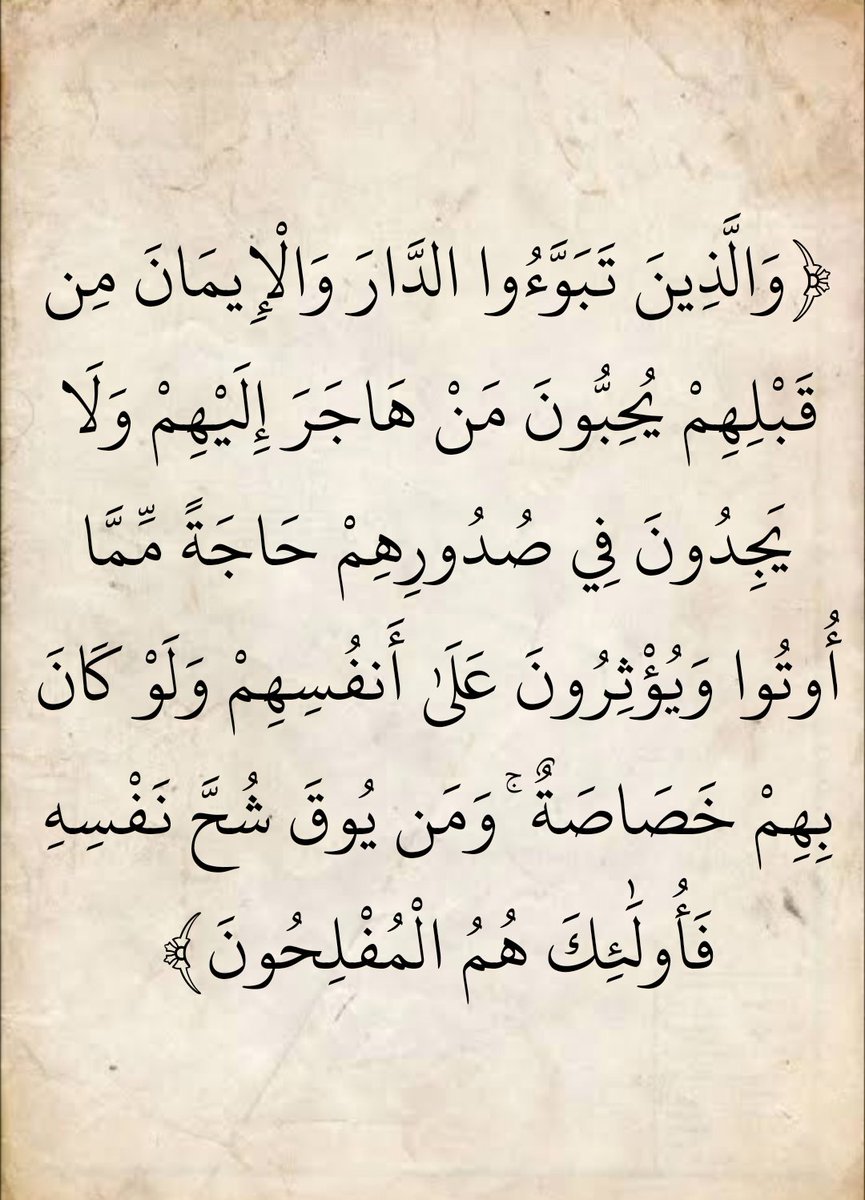 ﴿وَالَّذِينَ تَبَوَّءُوا الدَّارَ وَالْإِيمَانَ مِن
قَبْلِهِمْ يُحِبُّونَ مَنْ هَاجَرَ إِلَيْهِمْ وَلَا
يَجِدُونَ فِي صُدُورِهِمْ حَاجَةً مِّمَّا
أُوتُوا وَيُؤْثِرُونَ عَلَىٰ أَنفُسِهِمْ وَلَوْ كَانَ
بِهِمْ خَصَاصَةٌ ۚ وَمَن يُوقَ شُحَّ نَفْسِهِ
فَأُولَٰئِكَ هُمُ الْمُفْلِحُونَ﴾